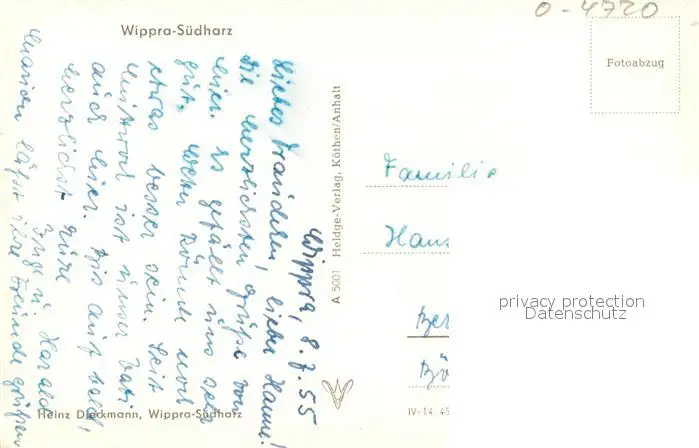 O-4720
Wippra-Südharz
Fotoabzug
Wippra, 8.7.55
Liebes Traudchen, lieber Hanni!
Die herzlichsten Grüße von
hier. Es gefällt uns sehr
gut. Wetter könnte noch
etwas besser sein. Seit
Mittwoch ist unser Vati
auch hier. Bis auf bald,
herzlichst Eure
Inge u. Harald
läßt ihre Freunde grüßen
A 5001 Heldge-Verlag, Köthen/Anhalt
Familie
Hans
Ber
Bö
privacy protection
Datenschutz
Heinz Dieckmann, Wippra-Südharz
IV-14 45